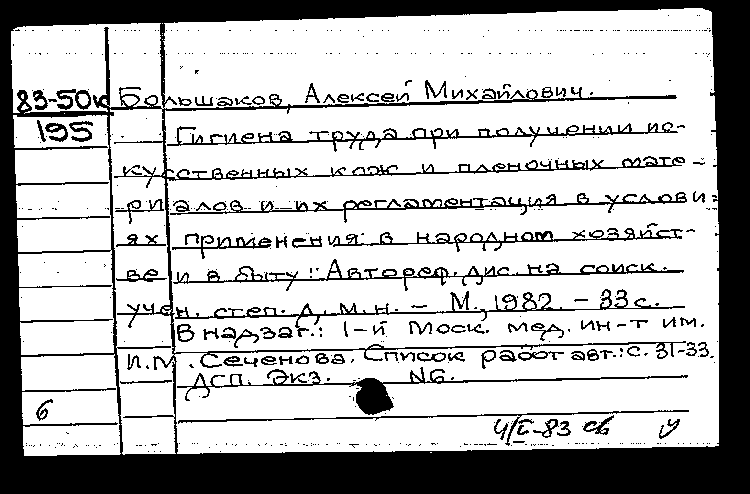 83-50к Большаков, Алексей Михайлович.
195 Гигиена труда при получении ис-
кусственных кож и пленочных мате-
риалов и их регламентация в услови-
ях применения в народном хозяйст-
ве и в быту: Автореф. дис. на соиск.
учен. степ. д.м.н. - М., 1982. - 33 с.
В надзаг.: 1-й Моск. мед. ин-т им.
И.М. Сеченова. Список работ авт.: с. 31-33.
ДСП. Экз. N6.
6
4/I-83